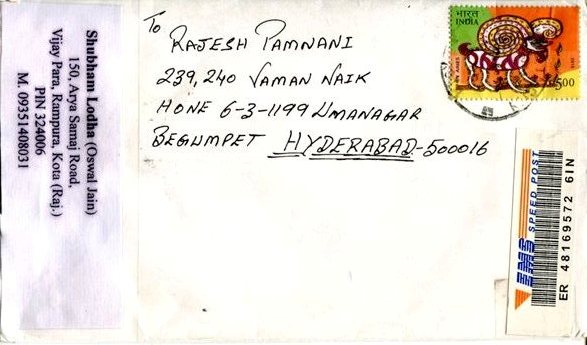 Shubham Lodha (Oswal Jain)
150, Arya Samaj Road,
Vijay Para, Rampura, Kota (Raj.)
PIN 324006
M. 09351408031
To
RAJESH PAMNANI
239,240 VAMAN NAIK
HONE 6-3-1199 UMANAGAR
BEGUMPET HYDERABAD-500016
भारत
INDIA
500
EMS
SPEED POST
ER 48169572 6IN